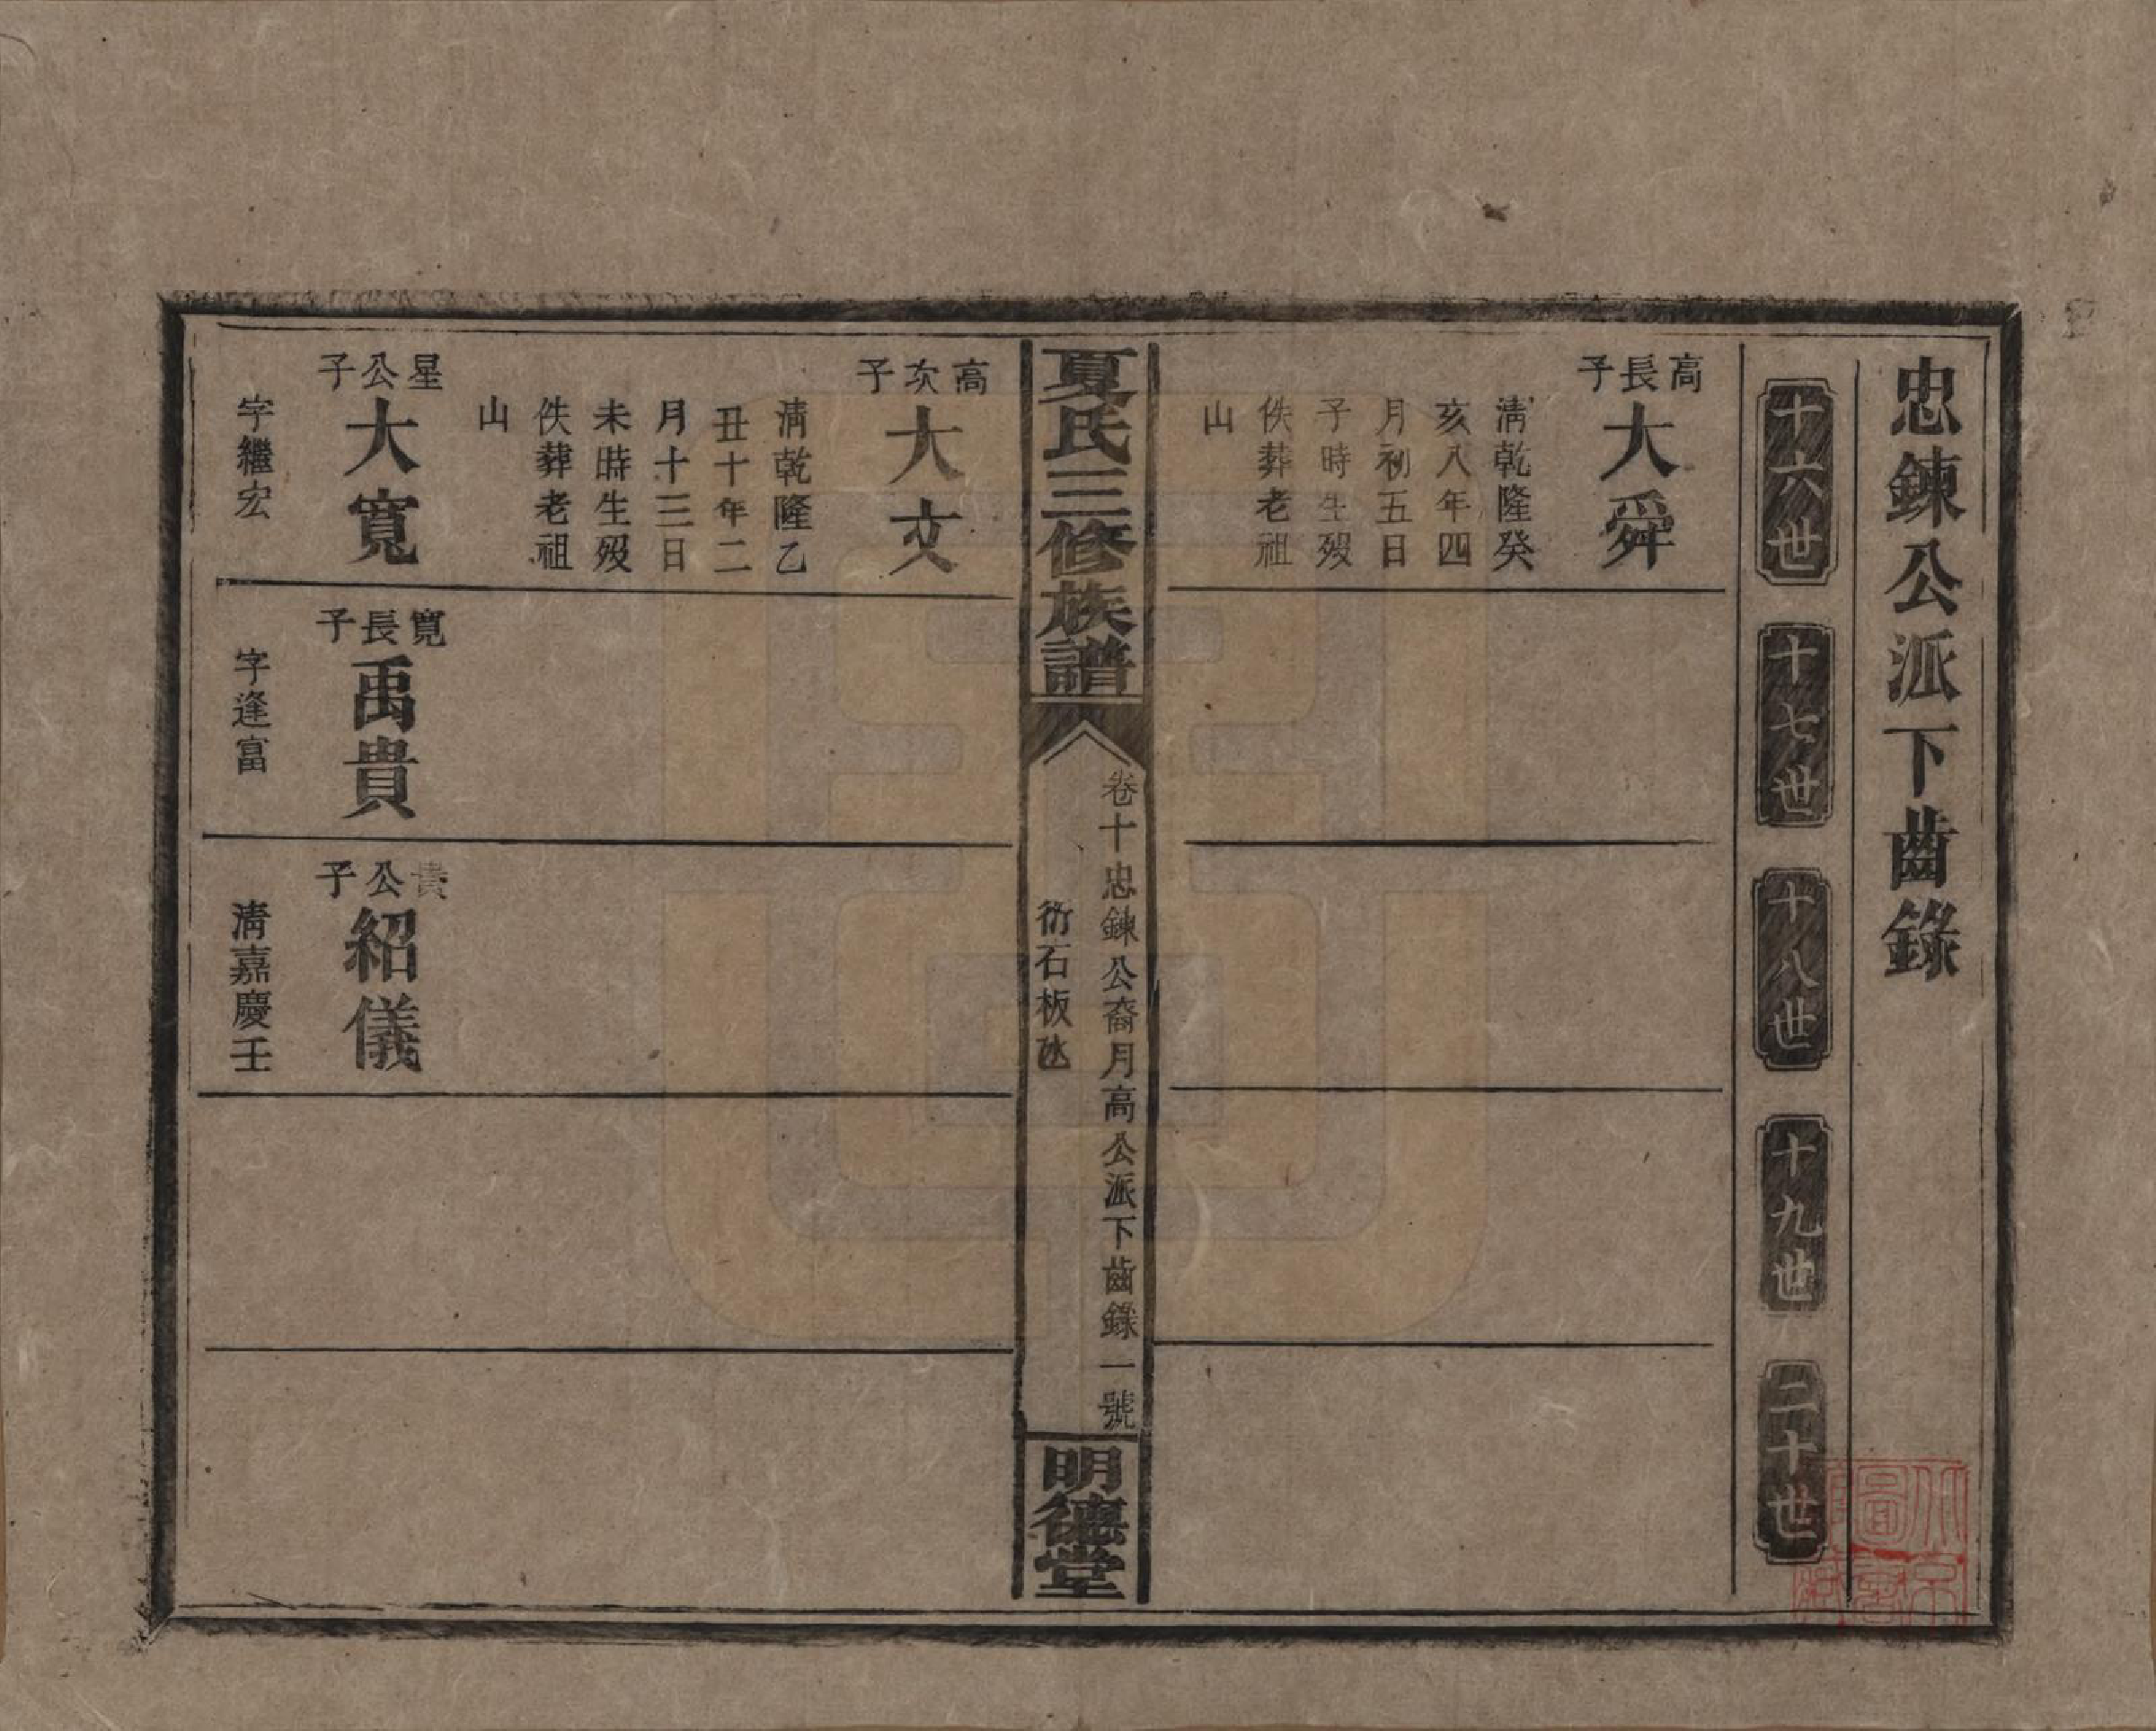 忠鍊公派下齒錄
十六世
十七世
十八世
十九世
二十世
高長子
大舜
淸乾隆癸
亥八年四
月初五日
子時生歿
佚葬老祖
山
夏氏三修族譜
卷十忠鍊公裔月高公派下齒錄一號
衕石板
明德堂
高次子
大文
淸乾隆乙
丑十年二
月十三日
未時生歿
佚葬老祖
山
星公子
大寬
字繼宏
寬長子
禹貴
字逢富
貴公子
紹儀
淸嘉慶壬